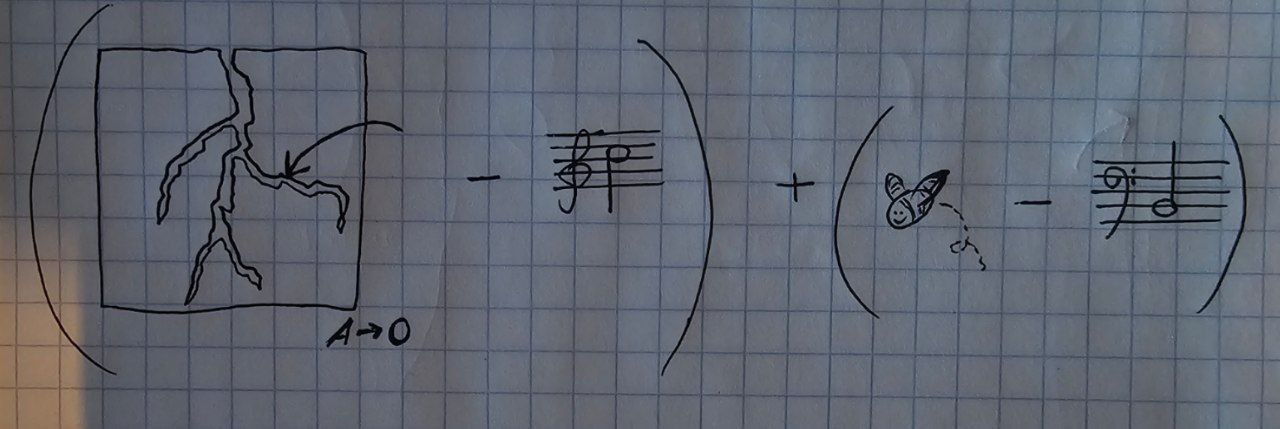 ( − ) + ( − )
A→O